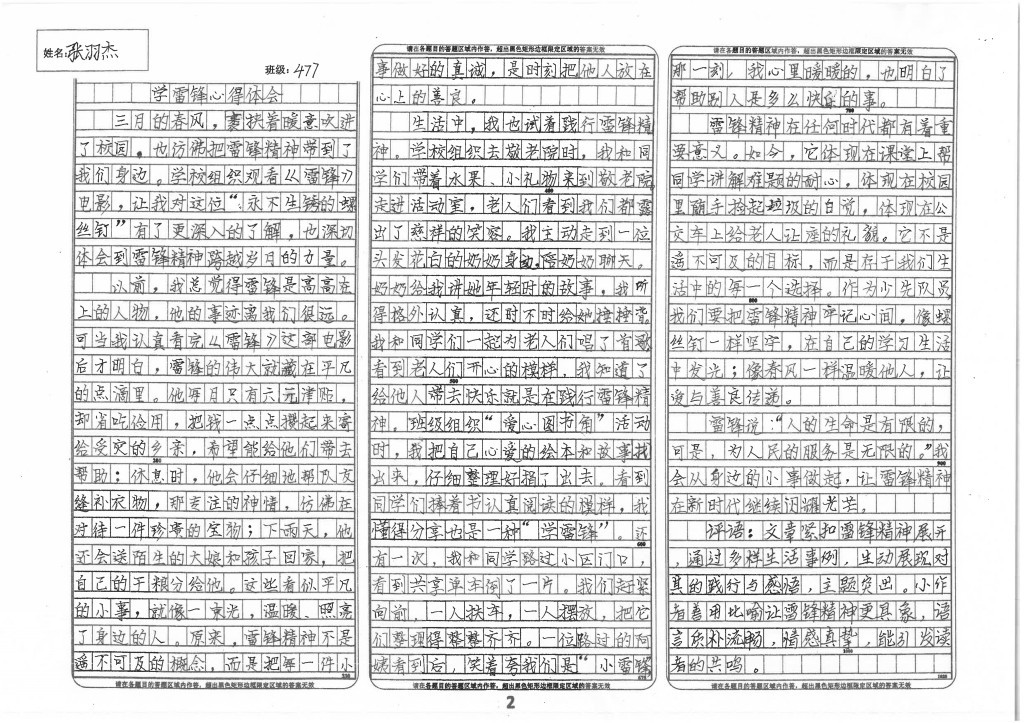 姓名:张羽杰
班级:477
学雷锋心得体会
三月的春风，裹挟着暖意吹进
了校园，也仿佛把雷锋精神带到了
我们身边。学校组织观看《雷锋》
电影，让我对这位“永不生锈的螺
丝钉”有了更深入的了解，也深切
体会到雷锋精神跨越岁月的力量。
以前，我总觉得雷锋是高高在
上的人物，他的事迹离我们很远。
可当我认真看完《雷锋》这部电影
后才明白，雷锋的伟大就藏在平凡
的点滴里。他每月只有六元津贴，
却省吃俭用，把钱一点点攒起来寄
给受灾的乡亲，希望能给他们带去
帮助；休息时，他会仔细地帮队友
缝补衣物，那专注的神情，仿佛在
对待一件珍贵的宝物；下雨天，他
还会送陌生的大娘和孩子回家，把
自己的干粮分给他。这些看似平凡
的小事，就像一束光，温暖、照亮
了身边的人。原来，雷锋精神不是
遥不可及的概念，而是把每一件小
请在各题目的答题区域内作答，超出黑色矩形边框限定区域的答案无效
请在各题目的答题区域内作答，超出黑色矩形边框限定区域的答案无效
事做好的真诚，是时刻把他人放在
心上的善良。
生活中，我也试着践行雷锋精
神。学校组织去敬老院时，我和同
学们带着水果、小礼物来到敬老院
走进活动室，老人们看到我们都露
出了慈祥的笑容。我主动走到一位
头发花白的奶奶身边，陪奶奶聊天。
奶奶给我讲她年轻时的故事，我听
得格外认真，还时不时给她捶捶背。
我和同学们一起为老人们唱了首歌
看到老人们开心的模样，我知道了
给他人带去快乐就是在践行雷锋精
神。班级组织“爱心图书角”活动
时，我把自己心爱的绘本和故事找
出来，仔细整理好捐了出去。看到
同学们捧着书认真阅读的模样，我
懂得分享也是一种“学雷锋”。还
有一次，我和同学路过小区门口，
看到共享单车倒了一片。我们赶紧
向前，一人扶车，一人摆放，把它
们整理得整整齐齐。一位路过的阿
姨看到后，笑着夸我们是“小雷锋”
请在各题目的答题区域内作答，超出黑色矩形边框限定区域的答案无效
请在各题目的答题区域内作答，超出黑色矩形边框限定区域的答案无效
那一刻，我心里暖暖的，也明白了
帮助别人是多么快乐的事。
雷锋精神在任何时代都有着重
要意义。如今，它体现在课堂上帮
同学讲解难题的耐心，体现在校园
里随手捡起垃圾的自觉，体现在公
交车上给老人让座的礼貌。它不是
遥不可及的目标，而是存于我们生
活中的每一个选择。作为少先队员
我们要把雷锋精神牢记心间，像螺
丝钉一样坚守，在自己的学习生活
中发光；像春风一样温暖他人，让
爱与善良传递。
雷锋说：“人的生命是有限的，
可是，为人民的服务是无限的。”我
会从身边的小事做起，让雷锋精神
在新时代继续闪耀光芒。
评语：文章紧扣雷锋精神展开
，通过多样生活事例，生动展现对
其的践行与感悟，主题突出。小作
者善用比喻让雷锋精神更具象，语
言质朴流畅，情感真挚，能引发读
者的共鸣。
请在各题目的答题区域内作答，超出黑色矩形边框限定区域的答案无效
2